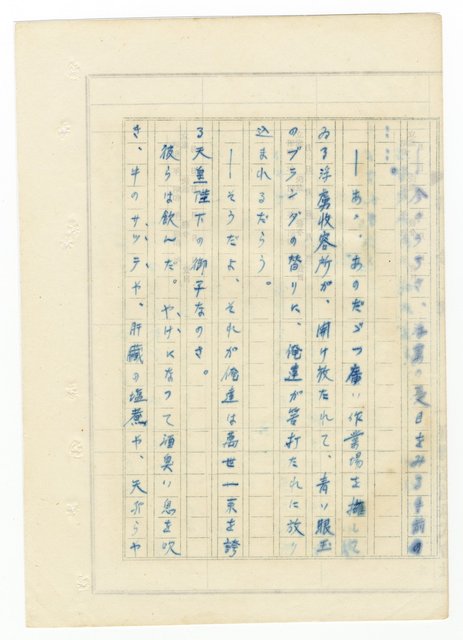 の夏日をみる手前の
……。
――あゝ、あのだゞつ廣い作業場を擁して
ゐる浮虜收容所が、開け放たれて、青い眼玉
のブランダの替りに、俺達が笞打たれに放り
込まれるだらう。
――そうだよ、それが俺達は萬世一系を誇
る天皇陛下の御子なのさ。
彼らは飲んだ。やけになつて酒臭い息を吹
き、牛のザッテや、肝臓の塩煮や、天ぷらや